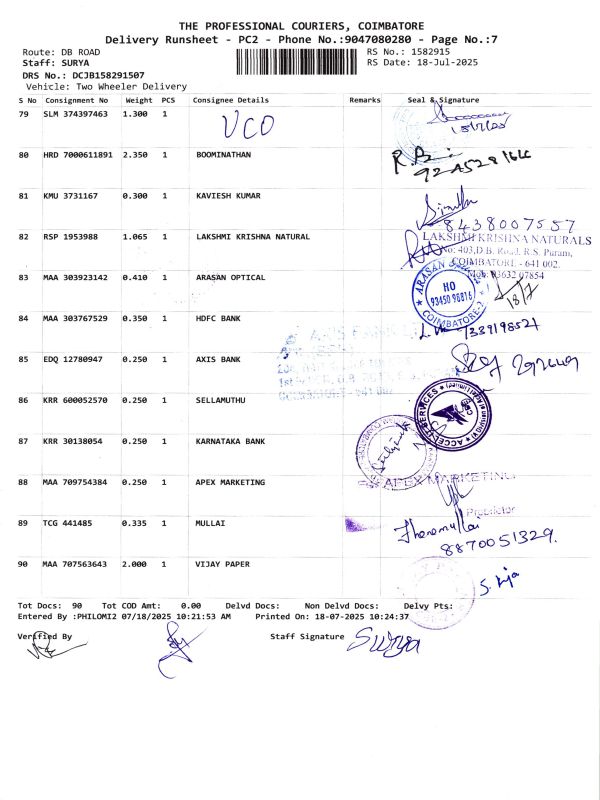 THE PROFESSIONAL COURIERS, COIMBATORE
Delivery Runsheet - PC2 - Phone No.:9047080280 - Page No.:7
Route: DB ROAD
Staff: SURYA
DRS No.: DCJB158291507
Vehicle: Two Wheeler Delivery
RS No.: 1582915
RS Date: 18-Jul-2025
S No Consignment No Weight PCS Consignee Details Remarks Seal & Signature
79 SLM 374397463 1.300 1 UCO
80 HRD 7000611891 2.350 1 BOOMINATHAN
81 KMU 3731167 0.300 1 KAVIESH KUMAR
8438007557
82 RSP 1953988 1.065 1 LAKSHMI KRISHNA NATURAL
LAKSHMI KRISHNA NATURALS
No: 403, D.B. Road, R.S. Puram,
COIMBATORE - 641 002.
Mob: 93632 07854
83 MAA 303923142 0.410 1 ARASAN OPTICAL
ARASAN
HO
93450 98816
COIMBATORE-2
18/7
84 MAA 303767529 0.350 1 HDFC BANK
85 EDQ 12780947 0.250 1 AXIS BANK
AXIS BANK
86 KRR 600052570 0.250 1 SELLAMUTHU
87 KRR 30138054 0.250 1 KARNATAKA BANK
88 MAA 709754384 0.250 1 APEX MARKETING
APEX MARKETING
Proprietor
89 TCG 441485 0.335 1 MULLAI
8870051329.
90 MAA 707563643 2.000 1 VIJAY PAPER
Tot Docs: 90 Tot COD Amt: 0.00 Delvd Docs: Non Delvd Docs: Delvy Pts:
Entered By :PHILOMI2 07/18/2025 10:21:53 AM Printed On: 18-07-2025 10:24:37
Verified By Staff Signature Surya